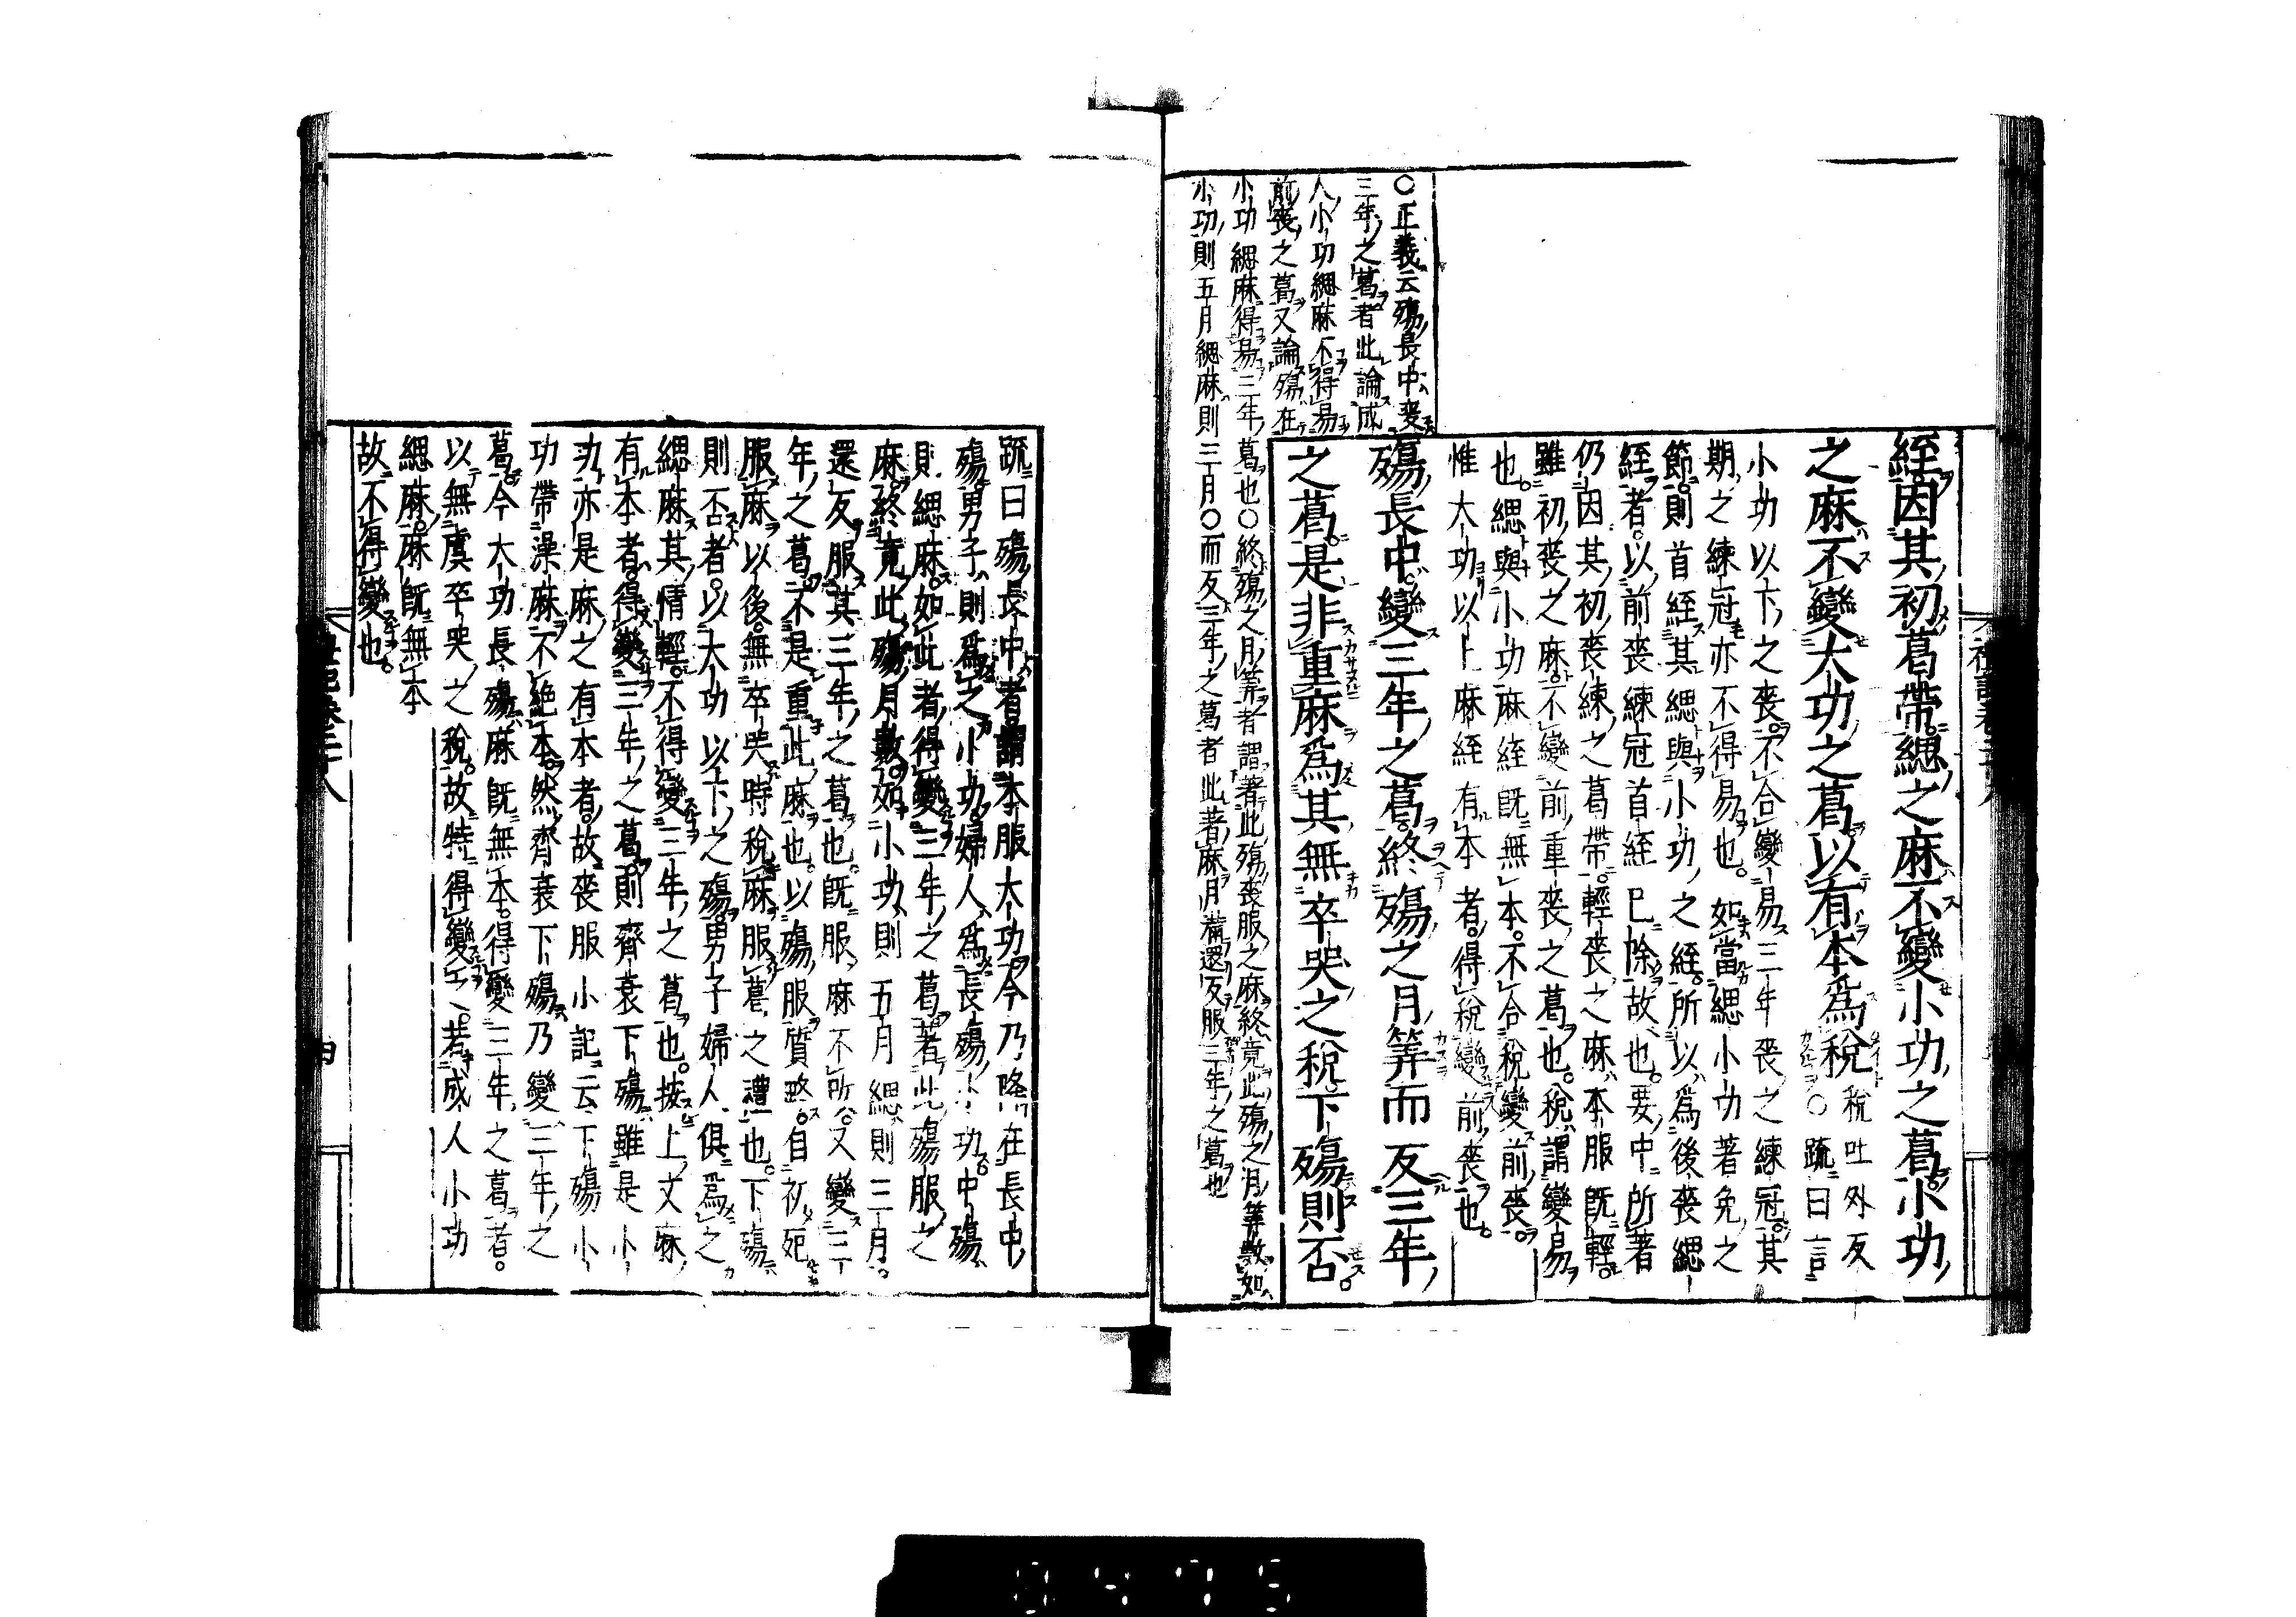 絰因其初葛帶緦之麻不變小功之葛小功
之麻不變大功之葛以有本為稅
稅吐外反
○疏曰言
小功以下之喪不合變易三年喪之練冠其
期之練冠亦不得易也如當緦小功著免之
節則首絰其緦與小功之絰所以為後喪緦
絰者以前喪練冠首絰已除故也要中所著
仍因其初喪練之葛帶輕喪之麻本服既輕
雖初喪之麻不變前重喪之葛也稅謂變易
也緦與小功麻絰既無本不合稅變前喪
惟大功以上麻絰有本者得稅變前喪也
殤長中變三年之葛終殤之月筭而反三年
之葛是非重麻為其無卒哭之稅下殤則否
○正義云殤長中變
三年之葛者此論成
人小功緦麻不得易
前喪之葛又論殤在
小功緦麻得易三年葛也○終殤之月筭者謂著此殤喪服之麻終竟此殤之月筭數如
小功則五月緦麻則三月○而反三年之葛者此著麻月滿還反服三年之葛也
疏曰殤長中者謂本服大功今乃降在長中
殤男子則為之小功婦人為長殤小功中殤
則緦麻如此者得變三年之葛著此殤服之
麻終竟此殤月數如小功則五月緦則三月
還反服其三年之葛也既服麻不所又變三
年之葛不是重此麻也以殤服質略自初死
服麻以後無卒哭時稅麻服葛之禮也下殤
則否者以大功以下之殤男子婦人俱為之
緦麻其情輕不得變三年之葛也按上文麻
有本者得變三年之葛則齊衰下殤雖是小
功亦是麻之有本者故喪服小記云下殤小
功帶澡麻不絕本然齊衰下殤乃變三年之
葛今大功長殤麻既無本得變三年之葛者
以無虞卒哭之稅故特得變之若成人小功
緦麻麻既無本
故不得變也